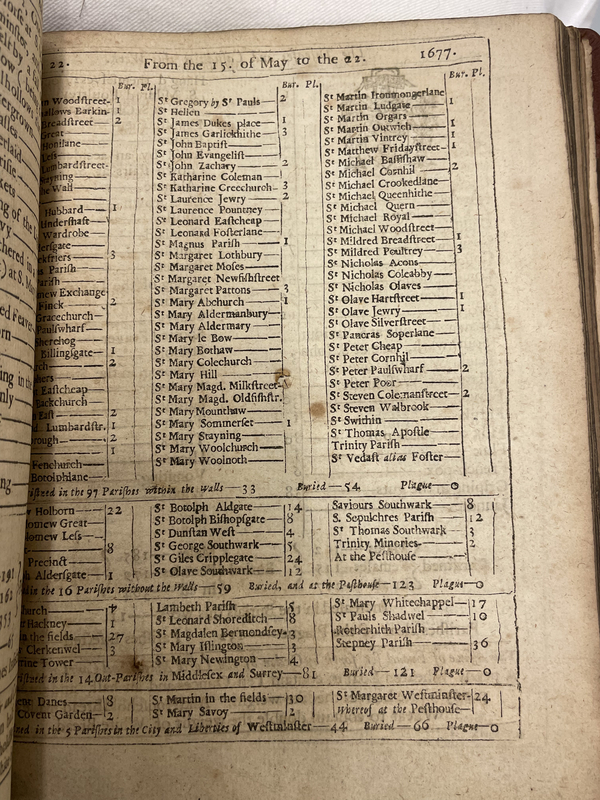 22. From the 15. of May to the 22. 1677.
Bur. Pl.
n Woodſtreet- 1
allows Barkin- 1
Breadſtreet— 2
Great
Honilane
Leſs
Lumbardſtreet-
Stayning
he Wall
Hubbard— 1
Underſhaft—
Wardrobe
derſgate—
ckfriers— 3
s Pariſh—
ariſh—
new Exchange
Finck— 2
Gracechurch—
Paulſwharf—
Sherehog
Billingſgate— 1
rch— 2
hers
Eaſtcheap
Backchurch
Eaſt— 2
Lumbardſtr. 1
orough— 2
1
Fenchurch—
Botolphlane—
Bur. Pl.
Sᵗ Gregory by Sᵗ Pauls— 2
Sᵗ Hellen
Sᵗ James Dukes place— 1
Sᵗ James Garlickhithe— 3
Sᵗ John Baptiſt—
Sᵗ John Evangeliſt—
Sᵗ John Zachary— 2
Sᵗ Katharine Coleman—
Sᵗ Katharine Creechurch- 3
Sᵗ Laurence Jewry— 2
Sᵗ Laurence Pountney—
Sᵗ Leonard Eaſtcheap
Sᵗ Leonard Foſterlane—
Sᵗ Magnus Pariſh— 1
Sᵗ Margaret Lothbury—
Sᵗ Margaret Moſes—
Sᵗ Margaret Newfiſhſtreet
Sᵗ Margaret Pattons— 3
Sᵗ Mary Abchurch— 1
Sᵗ Mary Aldermanbury—
Sᵗ Mary Aldermary—
Sᵗ Mary le Bow—
Sᵗ Mary Bothaw—
Sᵗ Mary Colechurch—
Sᵗ Mary Hill—
Sᵗ Mary Magd. Milkſtreet-
Sᵗ Mary Magd. Oldfiſhſtr.
Sᵗ Mary Mounthaw—
Sᵗ Mary Sommerſet— 1
Sᵗ Mary Stayning—
Sᵗ Mary Woolchurch—
Sᵗ Mary Woolnoth—
Bur. Pl.
Sᵗ Martin Ironmongerlane
Sᵗ Martin Ludgate— 1
Sᵗ Martin Orgars—
Sᵗ Martin Outwich— 1
Sᵗ Martin Vintrey— 1
Sᵗ Matthew Fridayſtreet— 1
Sᵗ Michael Baſſiſhaw—
Sᵗ Michael Cornhil— 2
Sᵗ Michael Crookedlane—
Sᵗ Michael Queenhithe—
Sᵗ Michael Quern—
Sᵗ Michael Royal—
Sᵗ Michael Woodſtreet—
Sᵗ Mildred Breadſtreet— 1
Sᵗ Mildred Poultrey— 3
Sᵗ Nicholas Acons—
Sᵗ Nicholas Coleabby—
Sᵗ Nicholas Olaves—
Sᵗ Olave Hartſtreet— 1
Sᵗ Olave Jewry— 1
Sᵗ Olave Silverſtreet—
Sᵗ Pancras Soperlane—
Sᵗ Peter Cheap—
Sᵗ Peter Cornhil—
Sᵗ Peter Paulſwharf— 2
Sᵗ Peter Poor—
Sᵗ Steven Colemanſtreet— 2
Sᵗ Steven Walbrook—
Sᵗ Swithin—
Sᵗ Thomas Apoſtle—
Trinity Pariſh—
Sᵗ Vedaſt alias Foſter—
iſtned in the 97 Pariſhes within the walls—33 Buried—54 Plague—0
Holborn— 22
lomew Great—
lomew Leſs—
8
Precinct—
h Alderſgate— 1
Sᵗ Botolph Aldgate— 14
Sᵗ Botolph Biſhopſgate— 8
Sᵗ Dunſtan Weſt— 4
Sᵗ George Southwark— 5
Sᵗ Giles Cripplegate— 24
Sᵗ Olave Southwark— 12
Saviours Southwark— 8
S. Sepulchres Pariſh— 12
Sᵗ Thomas Southwark— 3
Trinity Minories— 2
At the Peſthouſe—
d in the 16 Pariſhes without the Walls—59 Buried, and at the Peſthouſe—123 Plague—0
hurch— 4
Hackney— 1
n the fields— 27
Clerkenwel— 3
rine Tower—
Lambeth Pariſh— 5
Sᵗ Leonard Shoreditch— 8
Sᵗ Magdalen Bermondſey- 3
Sᵗ Mary Iſlington— 3
Sᵗ Mary Newington— 4
Sᵗ Mary Whitechappel— 17
Sᵗ Pauls Shadwel— 10
Rotherhith Pariſh—
Stepney Pariſh— 36
iſtned in the 14 Out-Pariſhes in Middleſex and Surrey—81 Buried—121 Plague—0
ent Danes— 8
Covent Garden— 2
Sᵗ Martin in the fields— 30
Sᵗ Mary Savoy— 2
Sᵗ Margaret Weſtminſter- 24
Whereof at the Peſthouſe—
ned in the 5 Pariſhes in the City and Liberties of Weſtminſter—44 Buried—66 Plague—0